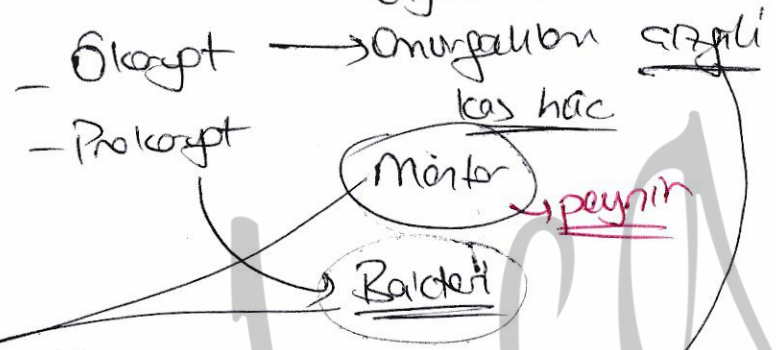 - Ökaryot → Omurgalıların çizgili
kas hüc
- Prokaryot
Mantar
→ peynir
Bakteri